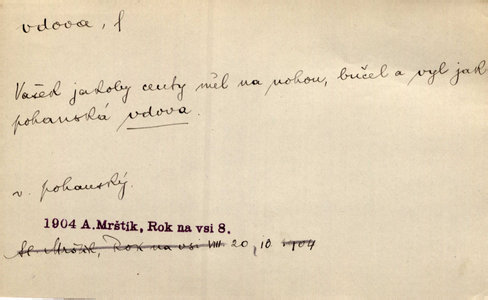 vdova, f
Vašek jakoby centy měl na nohou, bučel a vyl jak
pohanská vdova.
v. pohanský.
1904 A.Mrštík, Rok na vsi 8.
Al. Mrštík, Rok na vsi VIII 20, 10. 1904